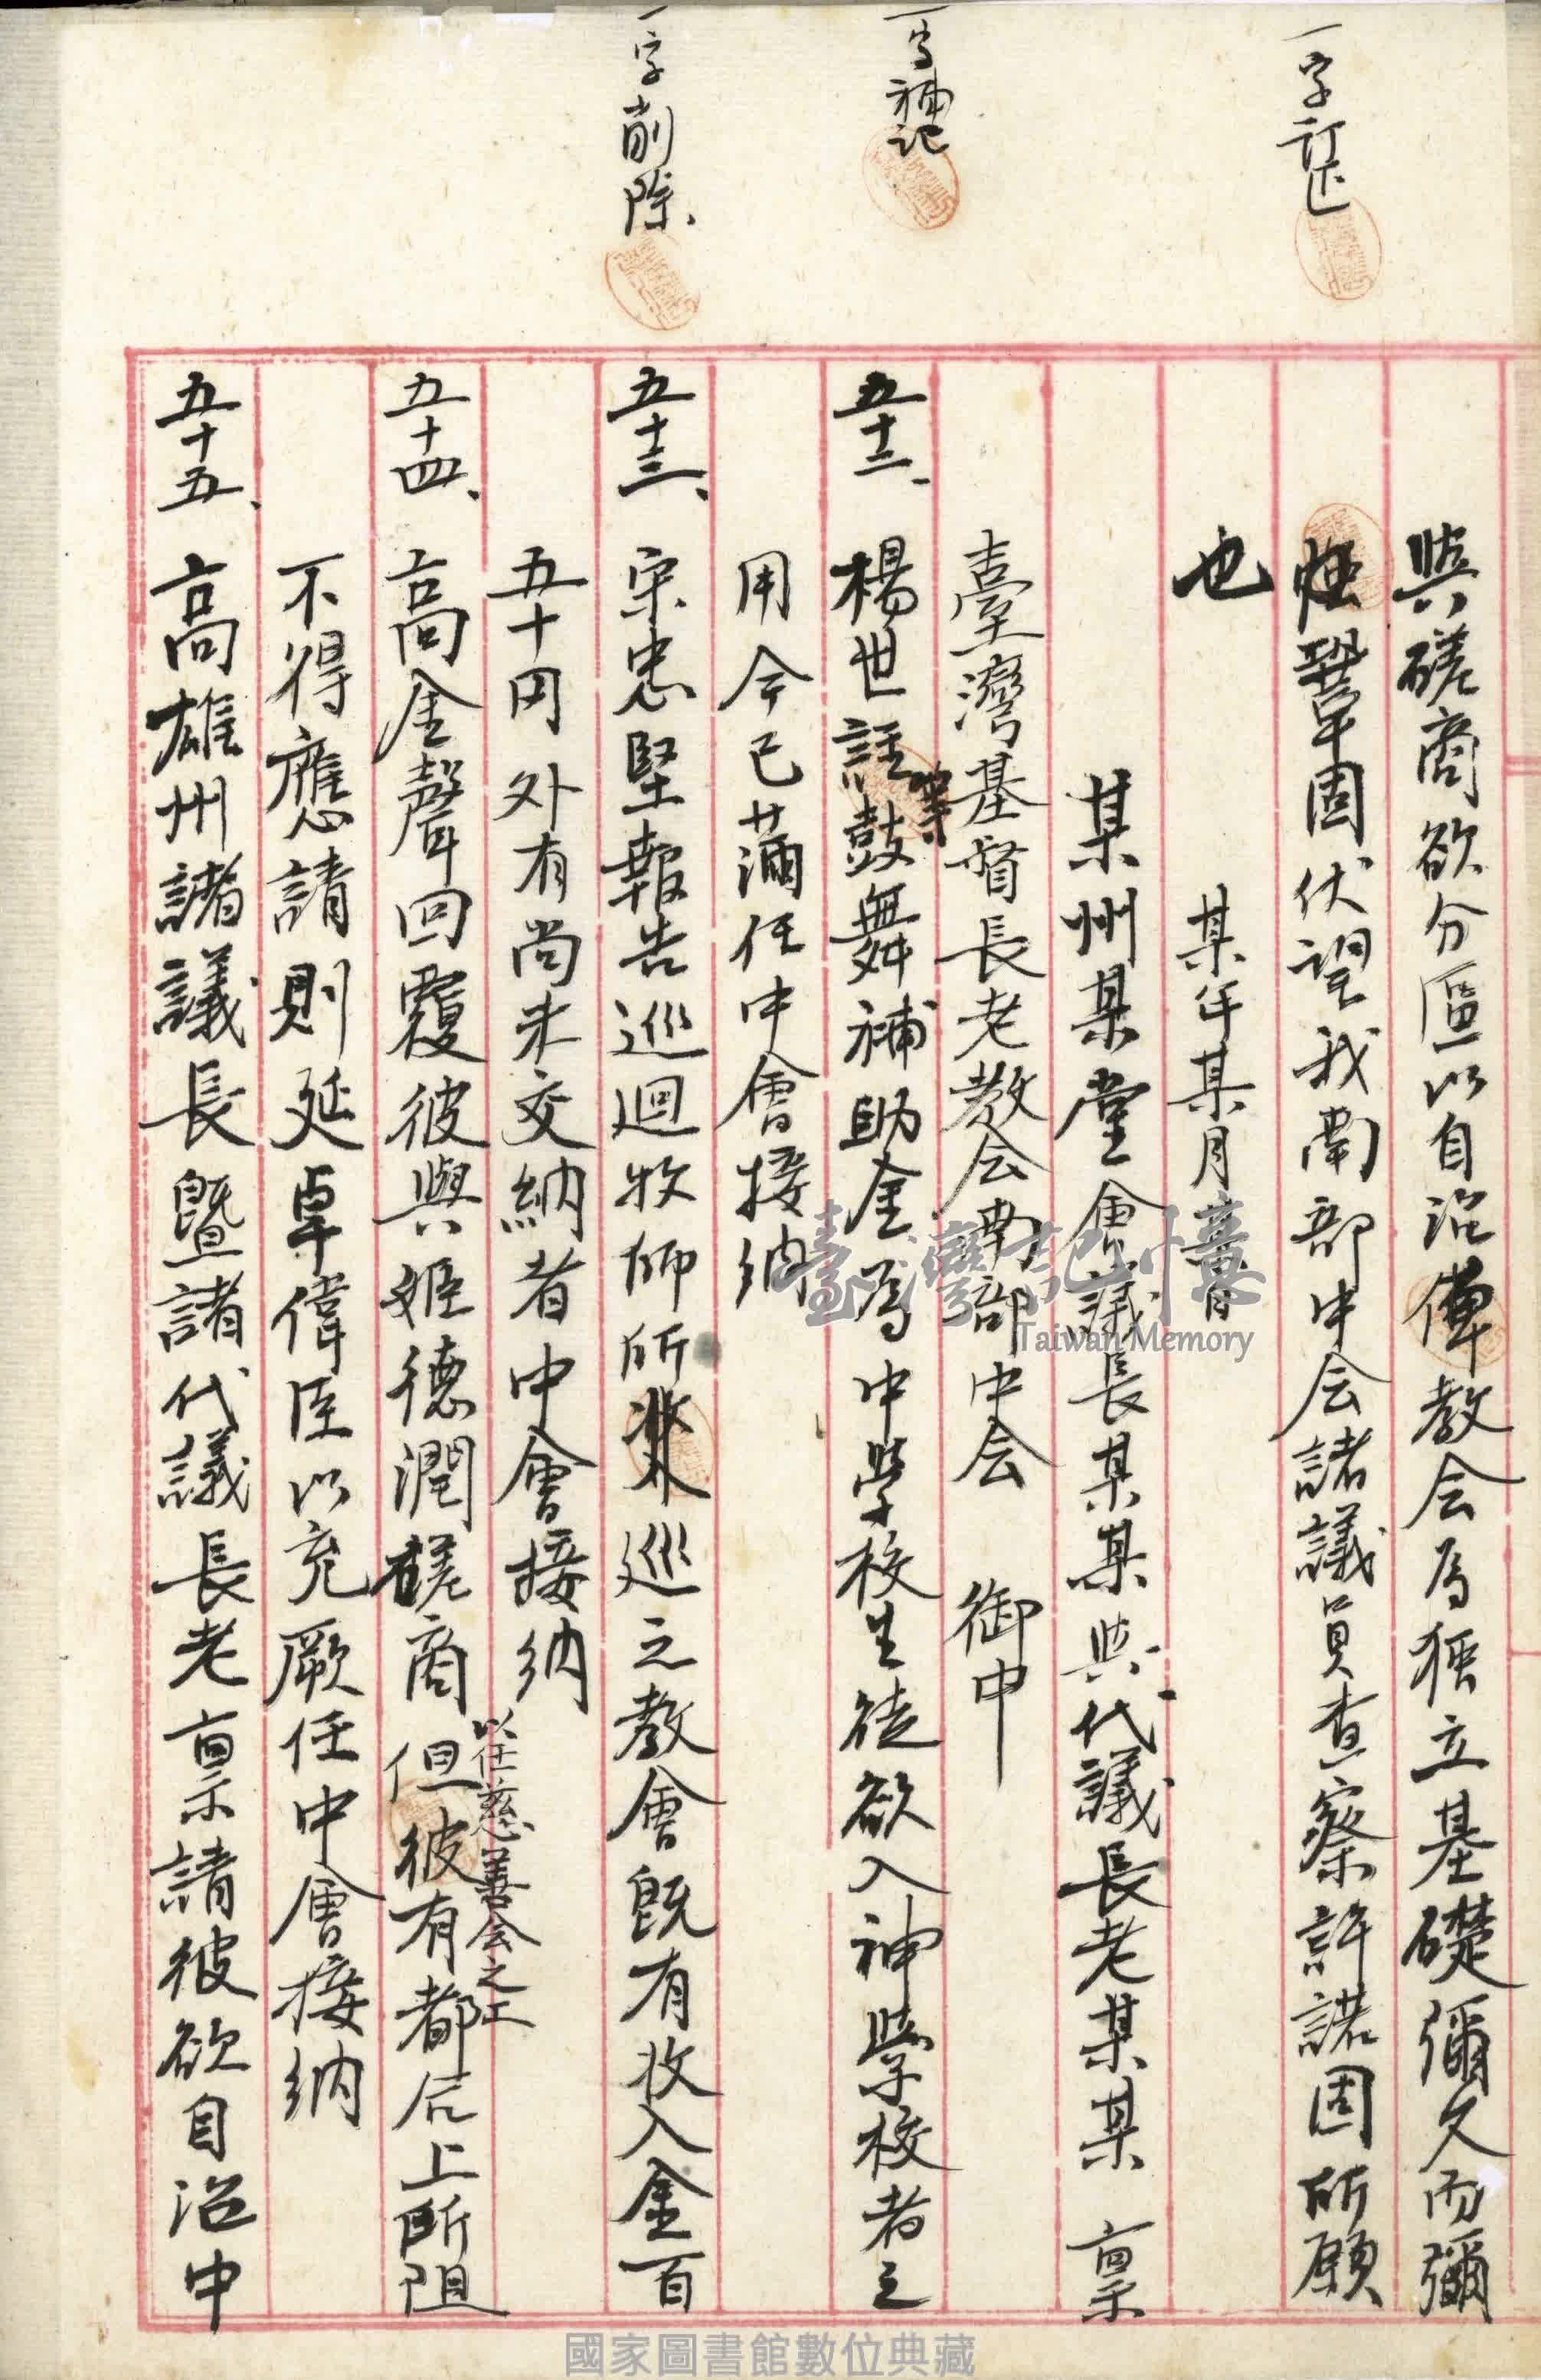 一字訂正
一字補記
一字削除、
與磋商欲分區以自治俾教会為独立基礎彌久而彌
鞏固伏望我南部中会諸議員查察許諾固所願
也
某年某月某日
某州某堂會議長某某與代議長老某某 稟
臺灣基督長老教会南部中会 御中
五十二、楊世註等鼓舞補助金為中學校生徒欲入神學校者之
用今已滿任中會接納
五十三、宋忠堅報告巡迴牧师所巡之教會既有收入金百
五十円外有尚未交納者中會接納
五十四、高金聲回覆彼與姬德潤磋商以任慈善会之工但彼有都合上所阻
不得應請則延卓偉臣以充厥任中會接納
五十五、高雄州諸議長暨諸代議長老稟請彼欲自治中
臺灣記憶
Taiwan Memory
國家圖書館數位典藏